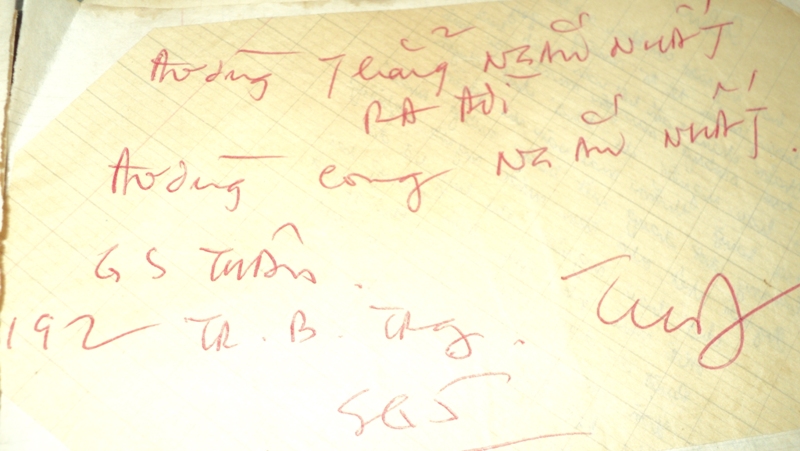 ĐƯỜNG Thẳng NGẮN NHẤT
RA ĐỜI
ĐƯỜNG cong NGẮN NHẤT.
GS
192 TR. B. TRg.
SG5